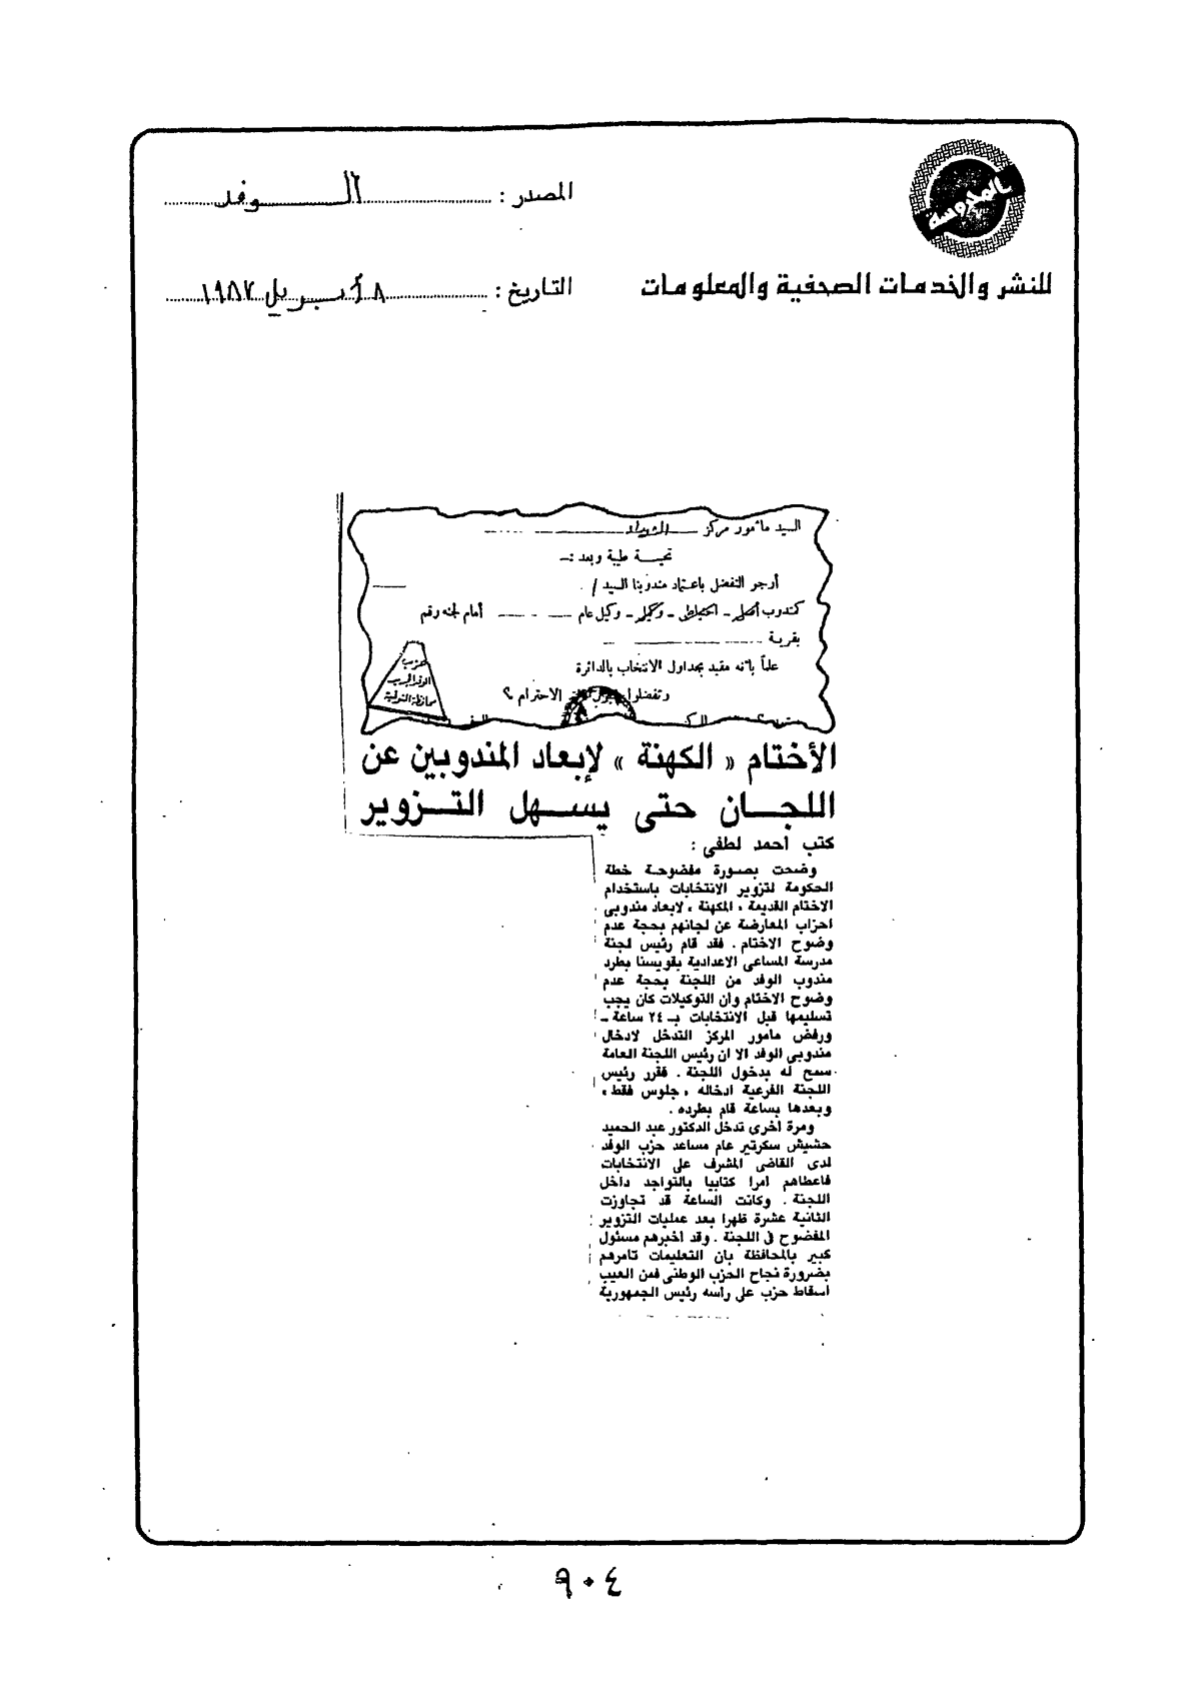 المصدر : الوفد
التاريخ : ٨ أبريل ١٩٨٧
للنشر والخدمات الصحفية والمعلومات
السيد مأمور مركز الشهداء
تحية طيبة وبعد :ـ
أرجو التفضل باعتماد مندوبنا السيد /
كمندوب أصلى - احتياطى - وكيل - وكيل عام أمام لجنة رقم
بقرية
علماً بأنه مقيد بجداول الانتخاب بالدائرة
وتفضلوا بقبول الاحترام ؟
حزب
الوفد الجديد
محافظة المنوفية
الأختام « الكهنة » لإبعاد المندوبين عن
اللجان حتى يسهل التزوير
كتب أحمد لطفى :
وضحت بصورة مفضوحة خطة
الحكومة لتزوير الانتخابات باستخدام
الاختام القديمة ، المكهنة ، لابعاد مندوبى
احزاب المعارضة عن لجانهم بحجة عدم
وضوح الاختام . فقد قام رئيس لجنة
مدرسة المساعى الاعدادية بقويسنا بطرد
مندوب الوفد من اللجنة بحجة عدم
وضوح الاختام وان التوكيلات كان يجب
تسليمها قبل الانتخابات بـ ٢٤ ساعة ـ
ورفض مامور المركز التدخل لادخال
مندوبى الوفد الا ان رئيس اللجنة العامة
سمح له بدخول اللجنة . فقرر رئيس
اللجنة الفرعية ادخاله ، جلوس فقط ،
وبعدها بساعة قام بطرده .
ومرة اخرى تدخل الدكتور عبد الحميد
حشيش سكرتير عام مساعد حزب الوفد
لدى القاضى المشرف على الانتخابات
فاعطاهم امرا كتابيا بالتواجد داخل
اللجنة . وكانت الساعة قد تجاوزت
الثانية عشرة ظهرا بعد عمليات التزوير
المفضوح فى اللجنة . وقد اخبرهم مسئول
كبير بالمحافظة بان التعليمات تامرهم
بضرورة نجاح الحزب الوطنى فمن العيب
اسقاط حزب على رأسه رئيس الجمهورية
٩٠٤